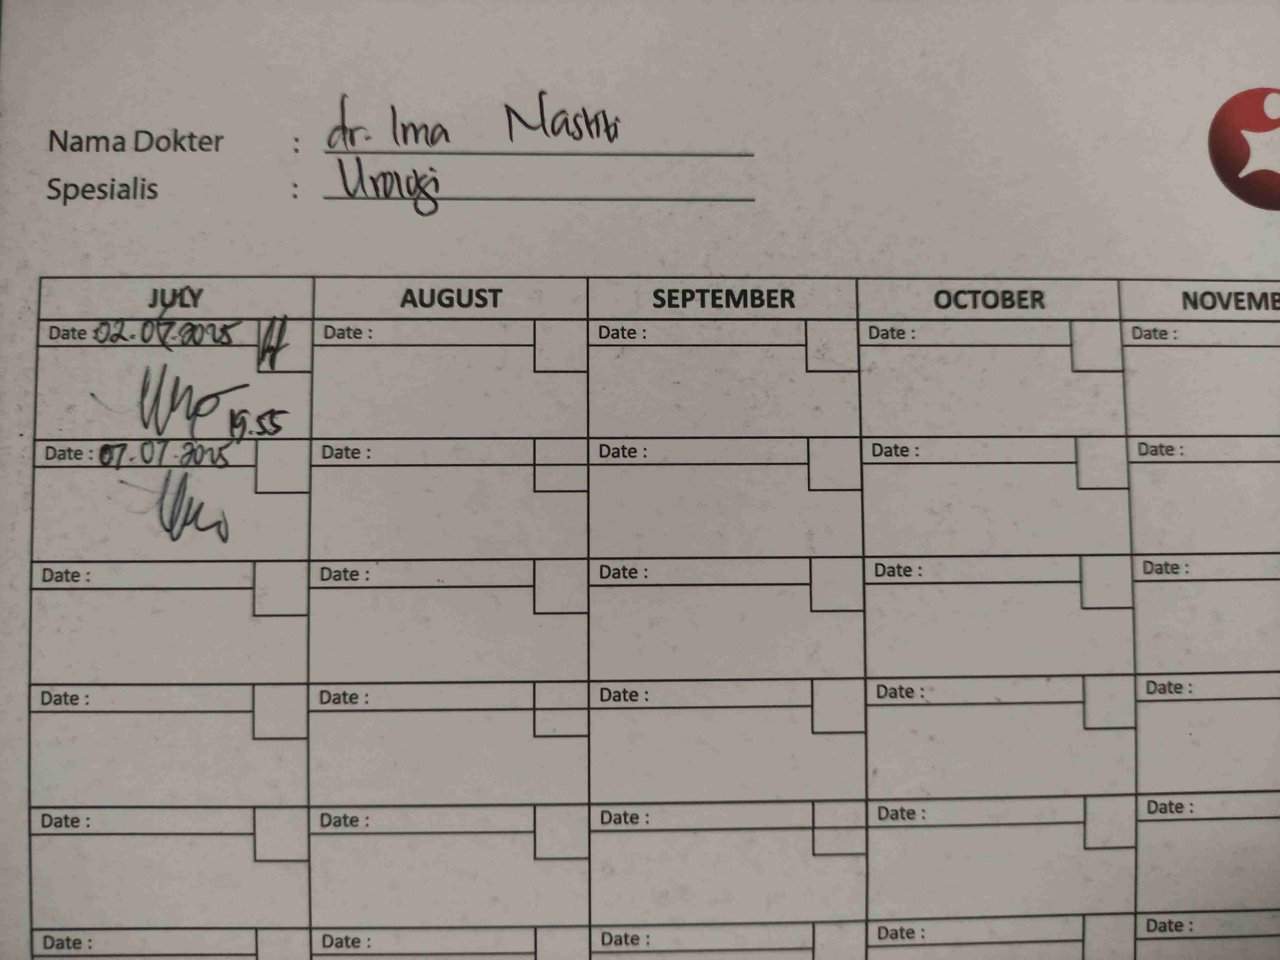 Nama Dokter : dr. Ima Nastiti
Spesialis : Urologi
JULY AUGUST SEPTEMBER OCTOBER NOVEMB
Date : 02.07.2025 Date : Date : Date : Date :
19.55
Date : 07.07.2025 Date : Date : Date : Date :
Date : Date : Date : Date : Date :
Date : Date : Date : Date : Date :
Date : Date : Date : Date : Date :
Date : Date : Date : Date : Date :